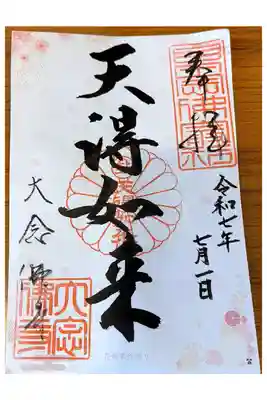 奉拝
令和七年
七月一日
天得如来
大念佛寺
大念佛寺